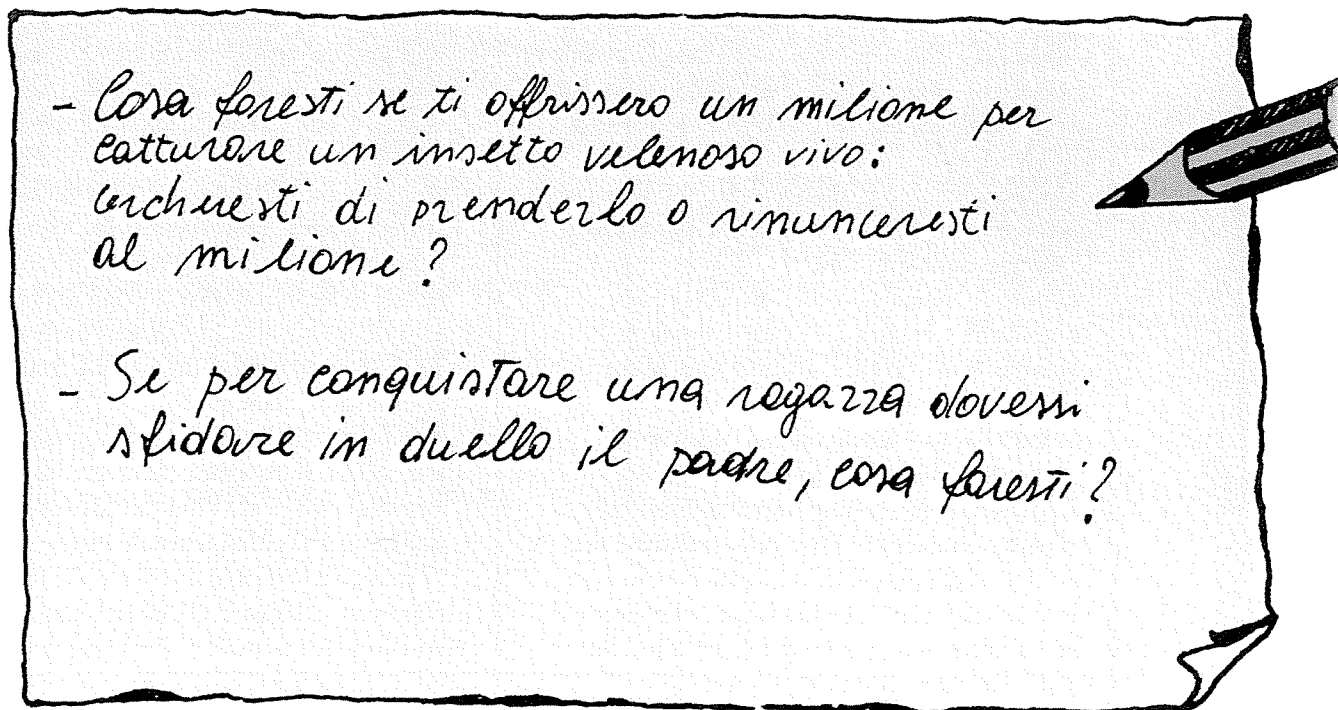 - Cosa faresti se ti offrissero un milione per
catturare un insetto velenoso vivo:
cercheresti di prenderlo o rinunceresti
al milione?
- Se per conquistare una ragazza dovessi
sfidare in duello il padre, cosa faresti?